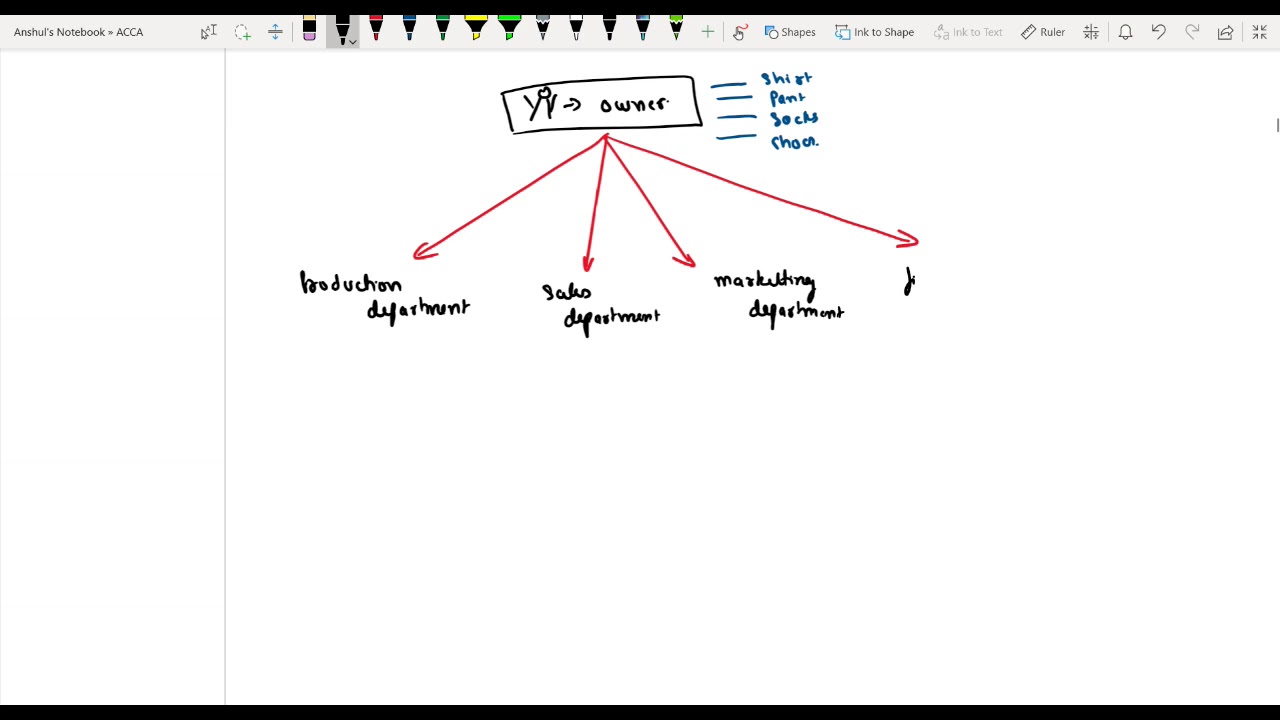 Anshul's Notebook » ACCA
Shapes
Ink to Shape
Ink to Text
Ruler
→ owner.
Shirt
Pant
Socks
Production
department
Sales
department
marketting
department